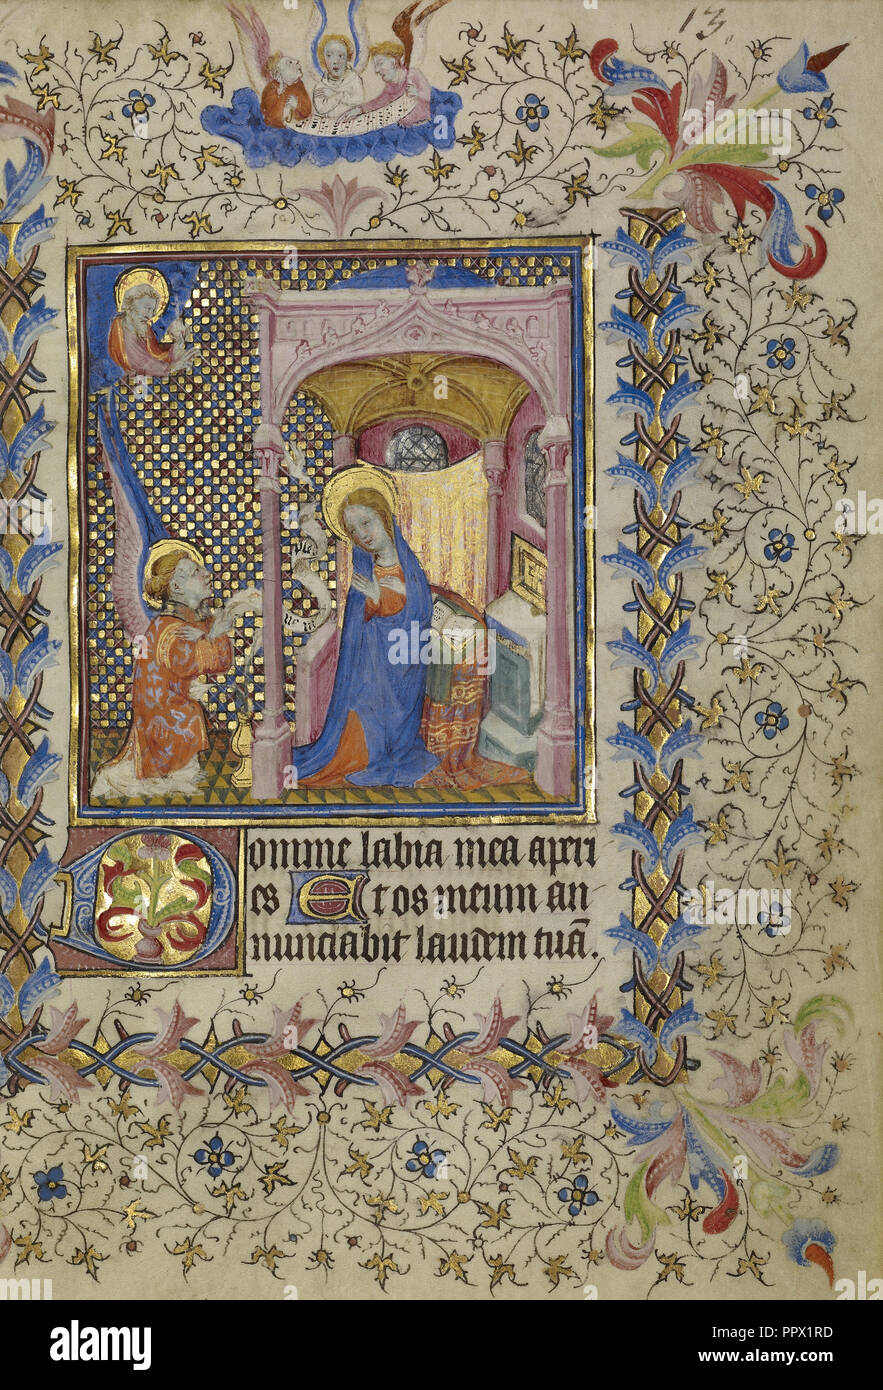 13
Domine labia mea aperi
es Et os meum an
nunciabit laudem tuā.
alamy
Image ID: PPX1RD
www.alamy.com